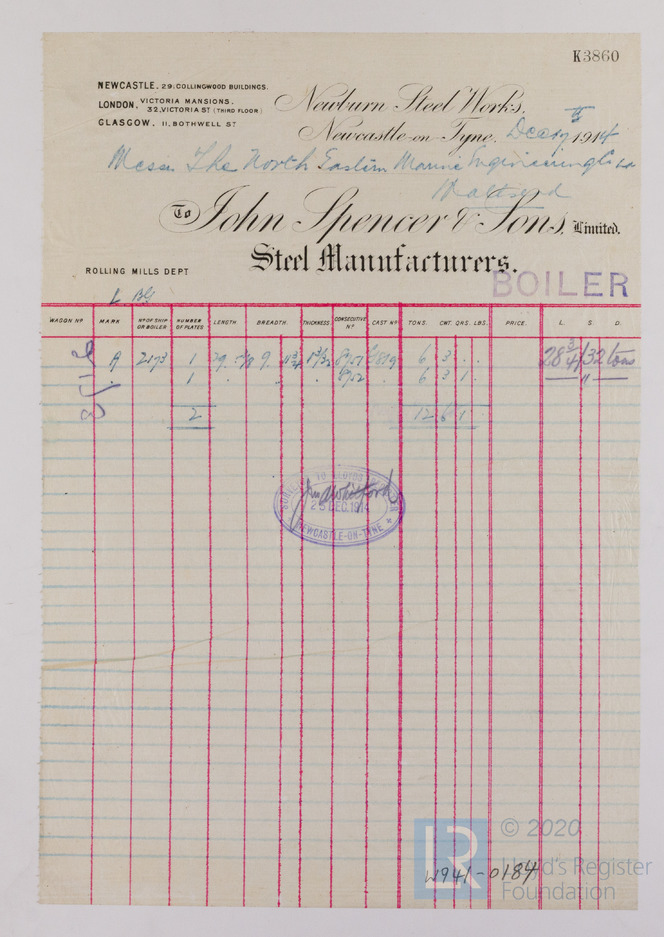 K3860
NEWCASTLE. 29. COLLINGWOOD BUILDINGS.
LONDON. VICTORIA MANSIONS.
32, VICTORIA ST (THIRD FLOOR)
GLASGOW. 11. BOTHWELL ST
Newburn Steel Works,
Newcastle-on-Tyne, 1914
Messrs The North Eastern Marine Engineering Co Ld
Wallsend
To John Spencer & Sons, Limited.
Steel Manufacturers.
ROLLING MILLS DEPT
BOILER
WAGON Nº MARK Nº OF SHIP OR BOILER NUMBER OF PLATES LENGTH BREADTH. THICKNESS CONSECUTIVE Nº CAST Nº TONS. CWT. QRS. LBS. PRICE. L. S. D.
A 2173 1 29 9 6 3 . . 28 3/4/32 tons
1 8952 6 3 1 . "
2 12 6 1
SURVEYOR TO LLOYDS REGISTER
25 DEC. 1914
NEWCASTLE-ON-TYNE
W941-0184
LR
© 2020
Lloyd's Register
Foundation